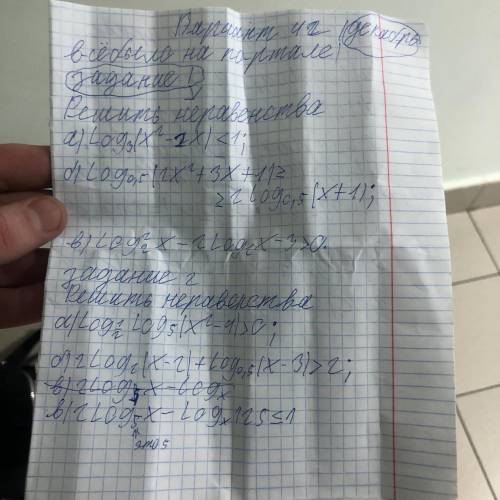 Вариант 42 | декабрь
всё было на портале
задание 1
Решить неравенства
а) Log₃(x²-2x)<1;
б) Log₀,₅(2x²+3x+1)≥
≥2Log₀,₅(x+1);
в) Log₂²x-2Log₂x-3>0.
задание 2
Решить неравенства
а) Log₁/₂ Log₅(x²-4)>0;
б) 2Log₂(x-2)+Log₀,₅(x-3)>2;
в) 2Log₅x-Logₓ
в) 2Log₅x-Logₓ125≤1
это 5